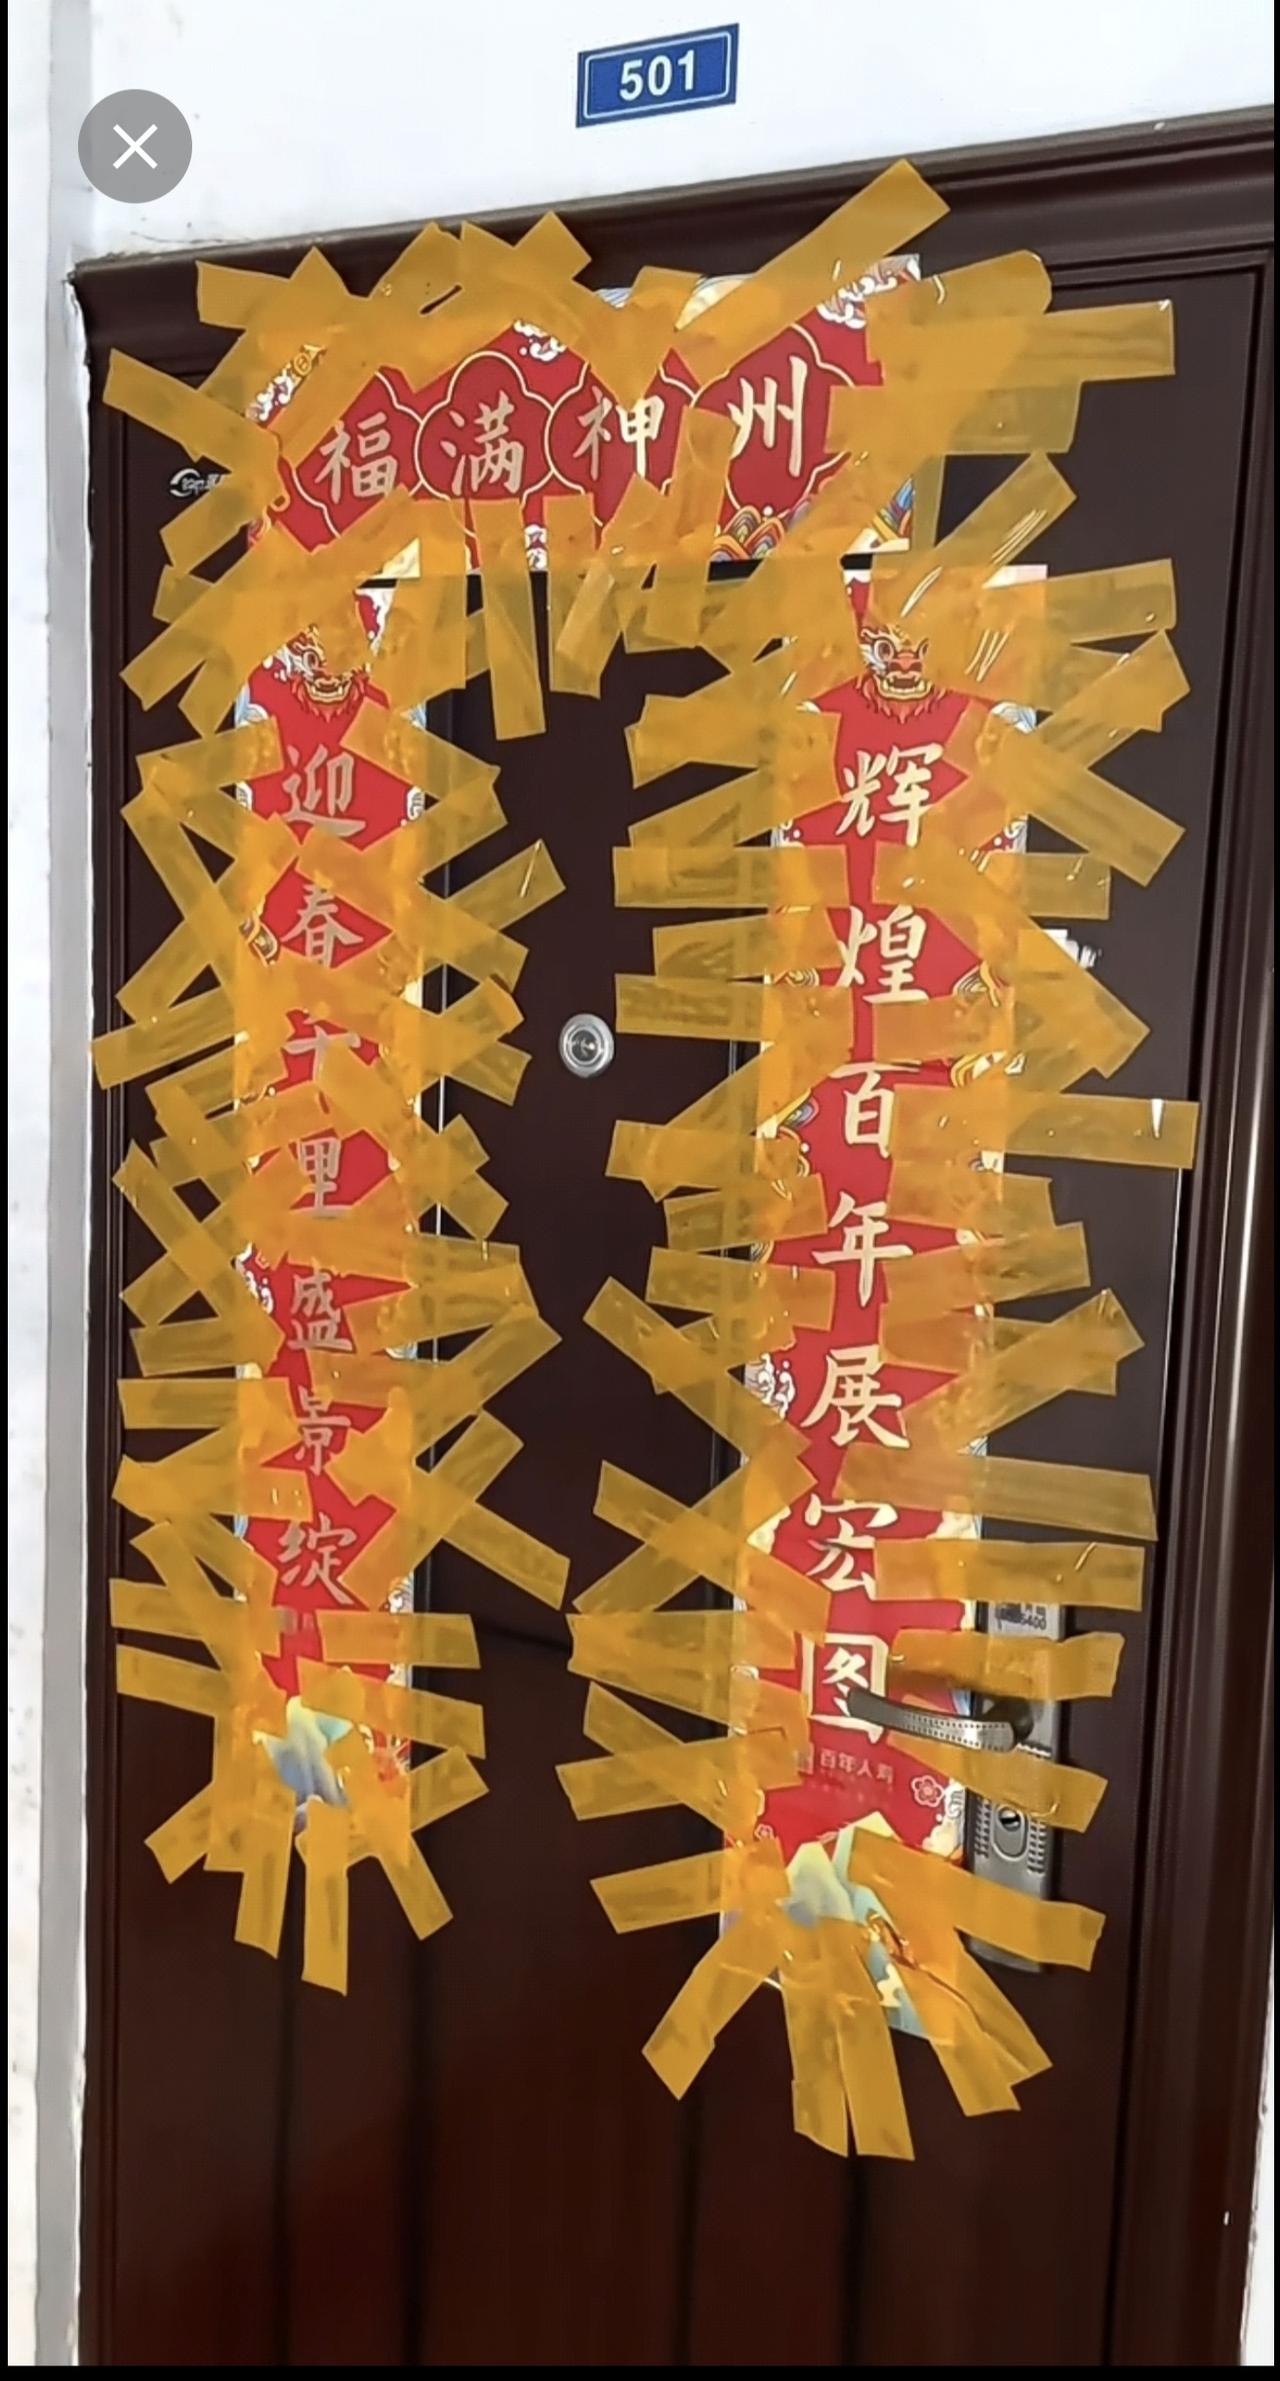 501
福满神州
辉煌百年展宏图
迎春千里盛景绽